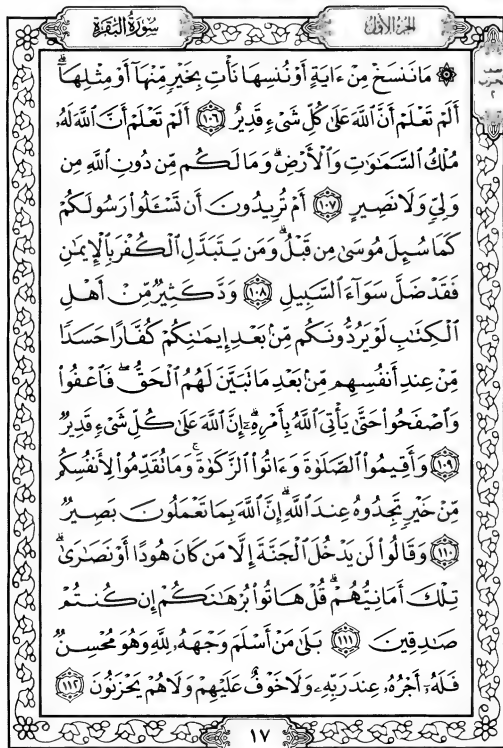 الجزء الأول
سورة البقرة
نصف
الحزب
٢
۞ مَا نَنسَخْ مِنْ ءَايَةٍ أَوْ نُنسِهَا نَأْتِ بِخَيْرٍ مِّنْهَآ أَوْ مِثْلِهَآۗ
أَلَمْ تَعْلَمْ أَنَّ ٱللَّهَ عَلَىٰ كُلِّ شَىْءٍ قَدِيرٌ ١٠٦ أَلَمْ تَعْلَمْ أَنَّ ٱللَّهَ لَهُۥ
مُلْكُ ٱلسَّمَٰوَٰتِ وَٱلْأَرْضِۗ وَمَا لَكُم مِّن دُونِ ٱللَّهِ مِن
وَلِىٍّ وَلَا نَصِيرٍ ١٠٧ أَمْ تُرِيدُونَ أَن تَسْـَٔلُوا۟ رَسُولَكُمْ
كَمَا سُئِلَ مُوسَىٰ مِن قَبْلُۗ وَمَن يَتَبَدَّلِ ٱلْكُفْرَ بِٱلْإِيمَٰنِ
فَقَدْ ضَلَّ سَوَآءَ ٱلسَّبِيلِ ١٠٨ وَدَّ كَثِيرٌ مِّنْ أَهْلِ
ٱلْكِتَٰبِ لَوْ يَرُدُّونَكُم مِّنۢ بَعْدِ إِيمَٰنِكُمْ كُفَّارًا حَسَدًا
مِّنْ عِندِ أَنفُسِهِم مِّنۢ بَعْدِ مَا تَبَيَّنَ لَهُمُ ٱلْحَقُّۖ فَٱعْفُوا۟
وَٱصْفَحُوا۟ حَتَّىٰ يَأْتِىَ ٱللَّهُ بِأَمْرِهِۦٓۗ إِنَّ ٱللَّهَ عَلَىٰ كُلِّ شَىْءٍ قَدِيرٌ
١٠٩ وَأَقِيمُوا۟ ٱلصَّلَوٰةَ وَءَاتُوا۟ ٱلزَّكَوٰةَۚ وَمَا تُقَدِّمُوا۟ لِأَنفُسِكُم
مِّنْ خَيْرٍ تَجِدُوهُ عِندَ ٱللَّهِۗ إِنَّ ٱللَّهَ بِمَا تَعْمَلُونَ بَصِيرٌ
١١٠ وَقَالُوا۟ لَن يَدْخُلَ ٱلْجَنَّةَ إِلَّا مَن كَانَ هُودًا أَوْ نَصَٰرَىٰۗ
تِلْكَ أَمَانِيُّهُمْۗ قُلْ هَاتُوا۟ بُرْهَٰنَكُمْ إِن كُنتُمْ
صَٰدِقِينَ ١١١ بَلَىٰ مَنْ أَسْلَمَ وَجْهَهُۥ لِلَّهِ وَهُوَ مُحْسِنٌ
فَلَهُۥٓ أَجْرُهُۥ عِندَ رَبِّهِۦ وَلَا خَوْفٌ عَلَيْهِمْ وَلَا هُمْ يَحْزَنُونَ ١١٢
١٧